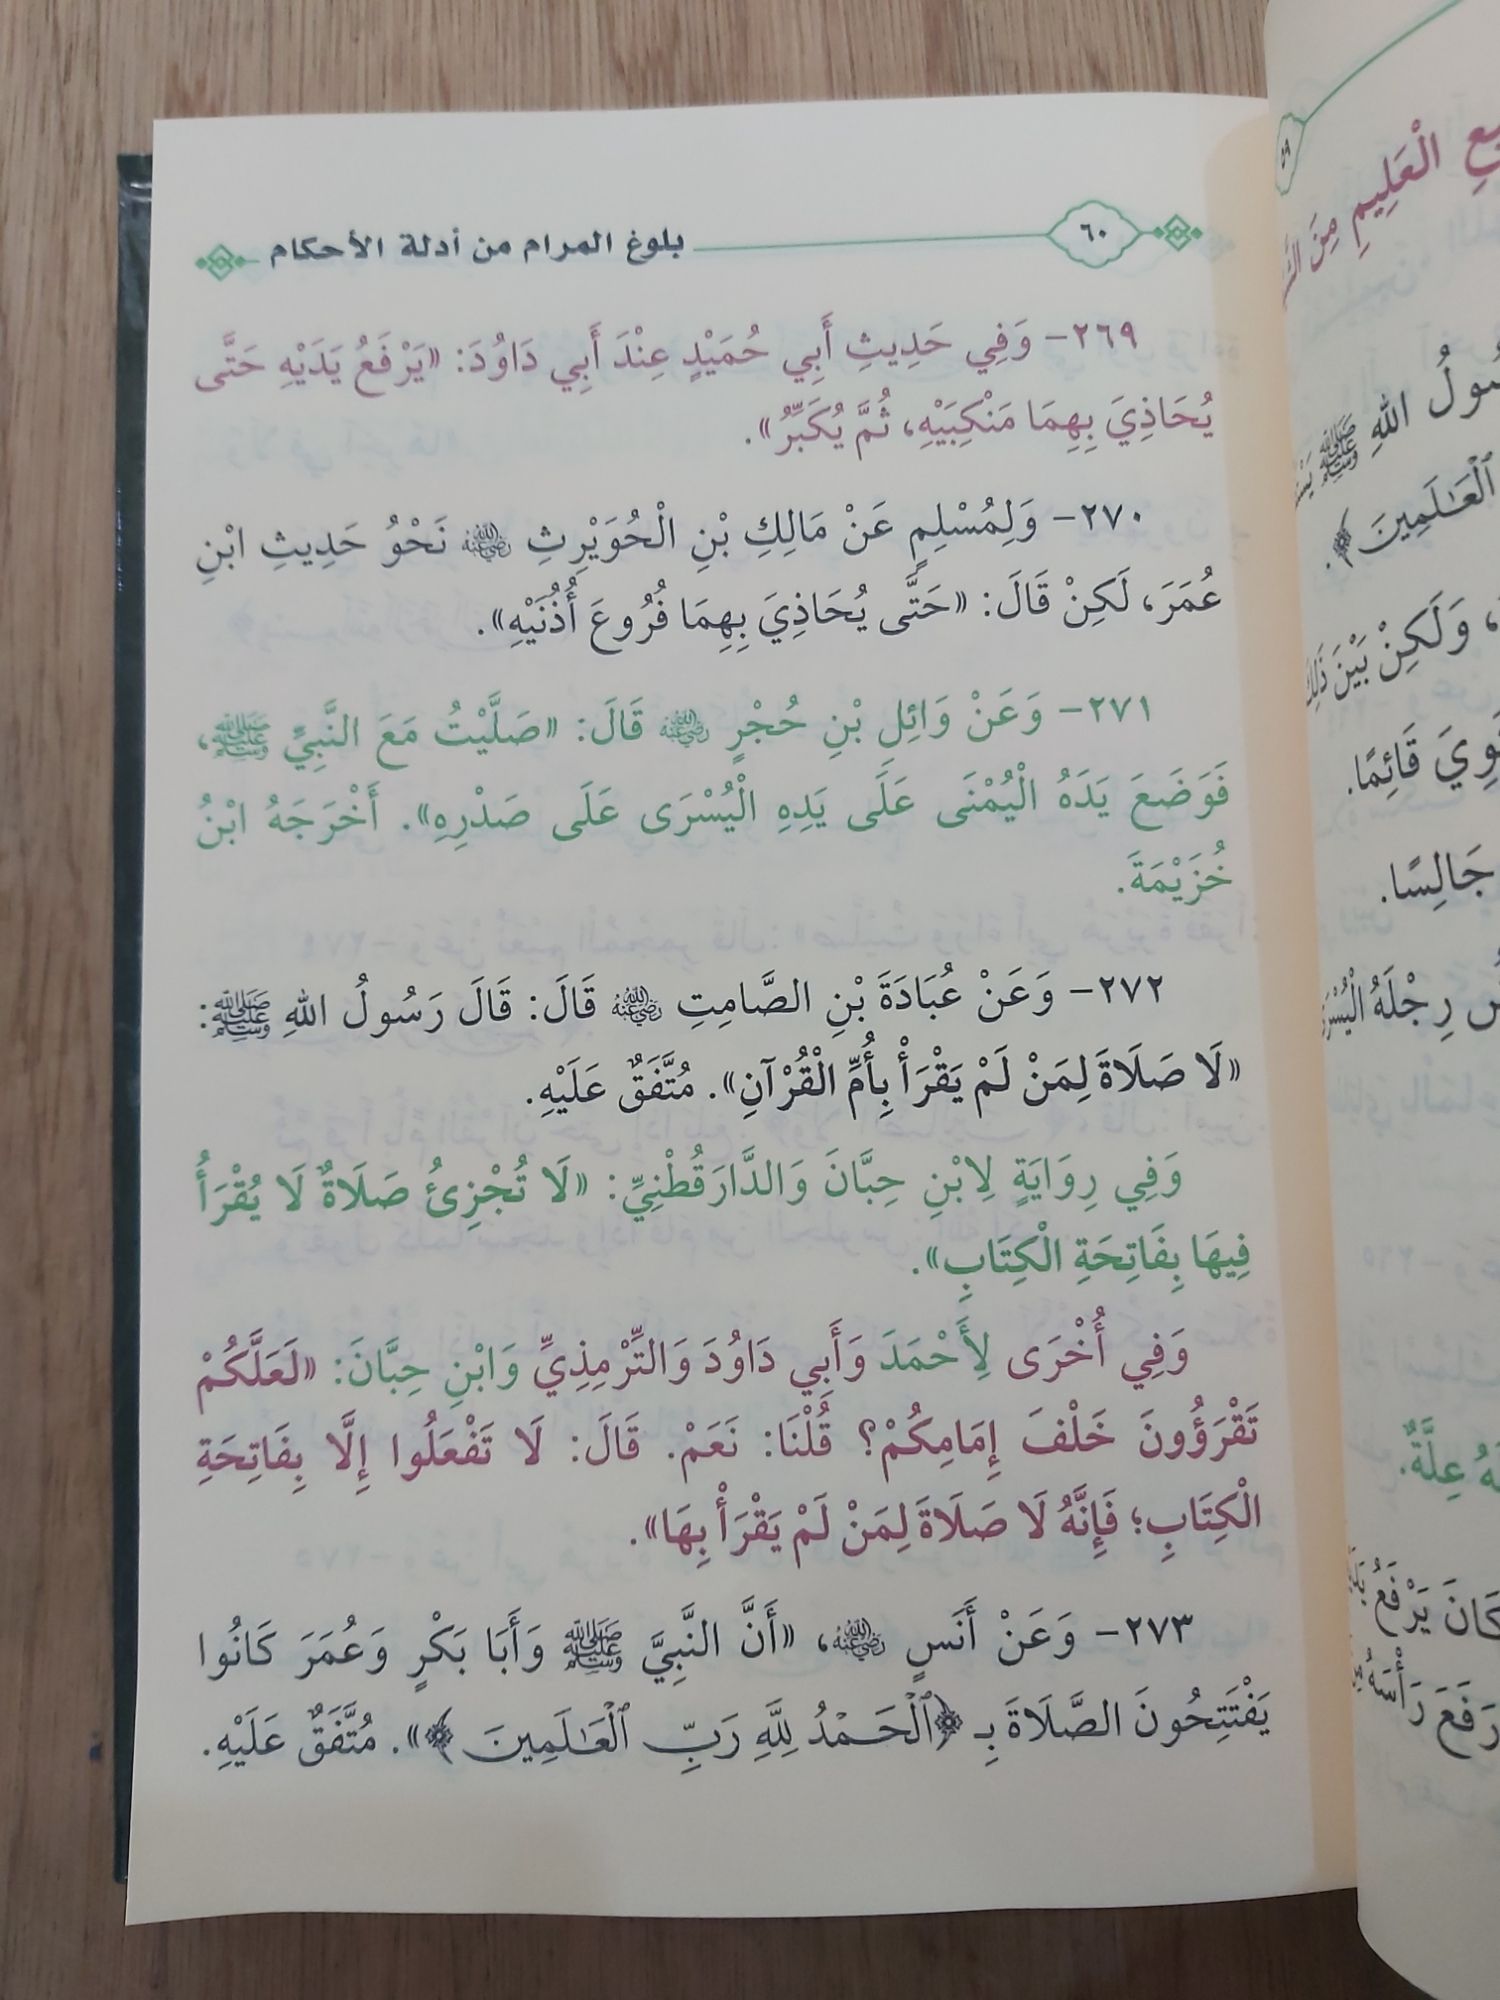 ٦٠ بلوغ المرام من أدلة الأحكام
٢٦٩- وَفِي حَدِيثِ أَبِي حُمَيْدٍ عِنْدَ أَبِي دَاوُدَ: «يَرْفَعُ يَدَيْهِ حَتَّى
يُحَاذِيَ بِهِمَا مَنْكِبَيْهِ، ثُمَّ يُكَبِّرُ».
٢٧٠- وَلِمُسْلِمٍ عَنْ مَالِكِ بْنِ الْحُوَيْرِثِ رضي الله عنه نَحْوُ حَدِيثِ ابْنِ
عُمَرَ، لَكِنْ قَالَ: «حَتَّى يُحَاذِيَ بِهِمَا فُرُوعَ أُذُنَيْهِ».
٢٧١- وَعَنْ وَائِلِ بْنِ حُجْرٍ رضي الله عنه قَالَ: «صَلَّيْتُ مَعَ النَّبِيِّ ﷺ،
فَوَضَعَ يَدَهُ الْيُمْنَى عَلَى يَدِهِ الْيُسْرَى عَلَى صَدْرِهِ». أَخْرَجَهُ ابْنُ
خُزَيْمَةَ.
٢٧٢- وَعَنْ عُبَادَةَ بْنِ الصَّامِتِ رضي الله عنه قَالَ: قَالَ رَسُولُ اللهِ ﷺ:
«لَا صَلَاةَ لِمَنْ لَمْ يَقْرَأْ بِأُمِّ الْقُرْآنِ». مُتَّفَقٌ عَلَيْهِ.
وَفِي رِوَايَةٍ لِابْنِ حِبَّانَ وَالدَّارَقُطْنِيِّ: «لَا تُجْزِئُ صَلَاةٌ لَا يُقْرَأُ
فِيهَا بِفَاتِحَةِ الْكِتَابِ».
وَفِي أُخْرَى لِأَحْمَدَ وَأَبِي دَاوُدَ وَالتِّرْمِذِيِّ وَابْنِ حِبَّانَ: «لَعَلَّكُمْ
تَقْرَؤُونَ خَلْفَ إِمَامِكُمْ؟ قُلْنَا: نَعَمْ. قَالَ: لَا تَفْعَلُوا إِلَّا بِفَاتِحَةِ
الْكِتَابِ؛ فَإِنَّهُ لَا صَلَاةَ لِمَنْ لَمْ يَقْرَأْ بِهَا».
٢٧٣- وَعَنْ أَنَسٍ رضي الله عنه، «أَنَّ النَّبِيَّ ﷺ وَأَبَا بَكْرٍ وَعُمَرَ كَانُوا
يَفْتَتِحُونَ الصَّلَاةَ بِـ ﴿ٱلْحَمْدُ لِلَّهِ رَبِّ ٱلْعَٰلَمِينَ﴾». مُتَّفَقٌ عَلَيْهِ.
٥٩
الْعَلِيمِ مِنَ
اللهِ ﷺ
ٱلْعَٰلَمِينَ﴾.
، وَلَكِنْ بَيْنَ ذَلِكَ
قَائِمًا.
جَالِسًا.
رِجْلَهُ
عِلَّةٌ.
كَانَ يَرْفَعُ
رَفَعَ رَأْسَهُ